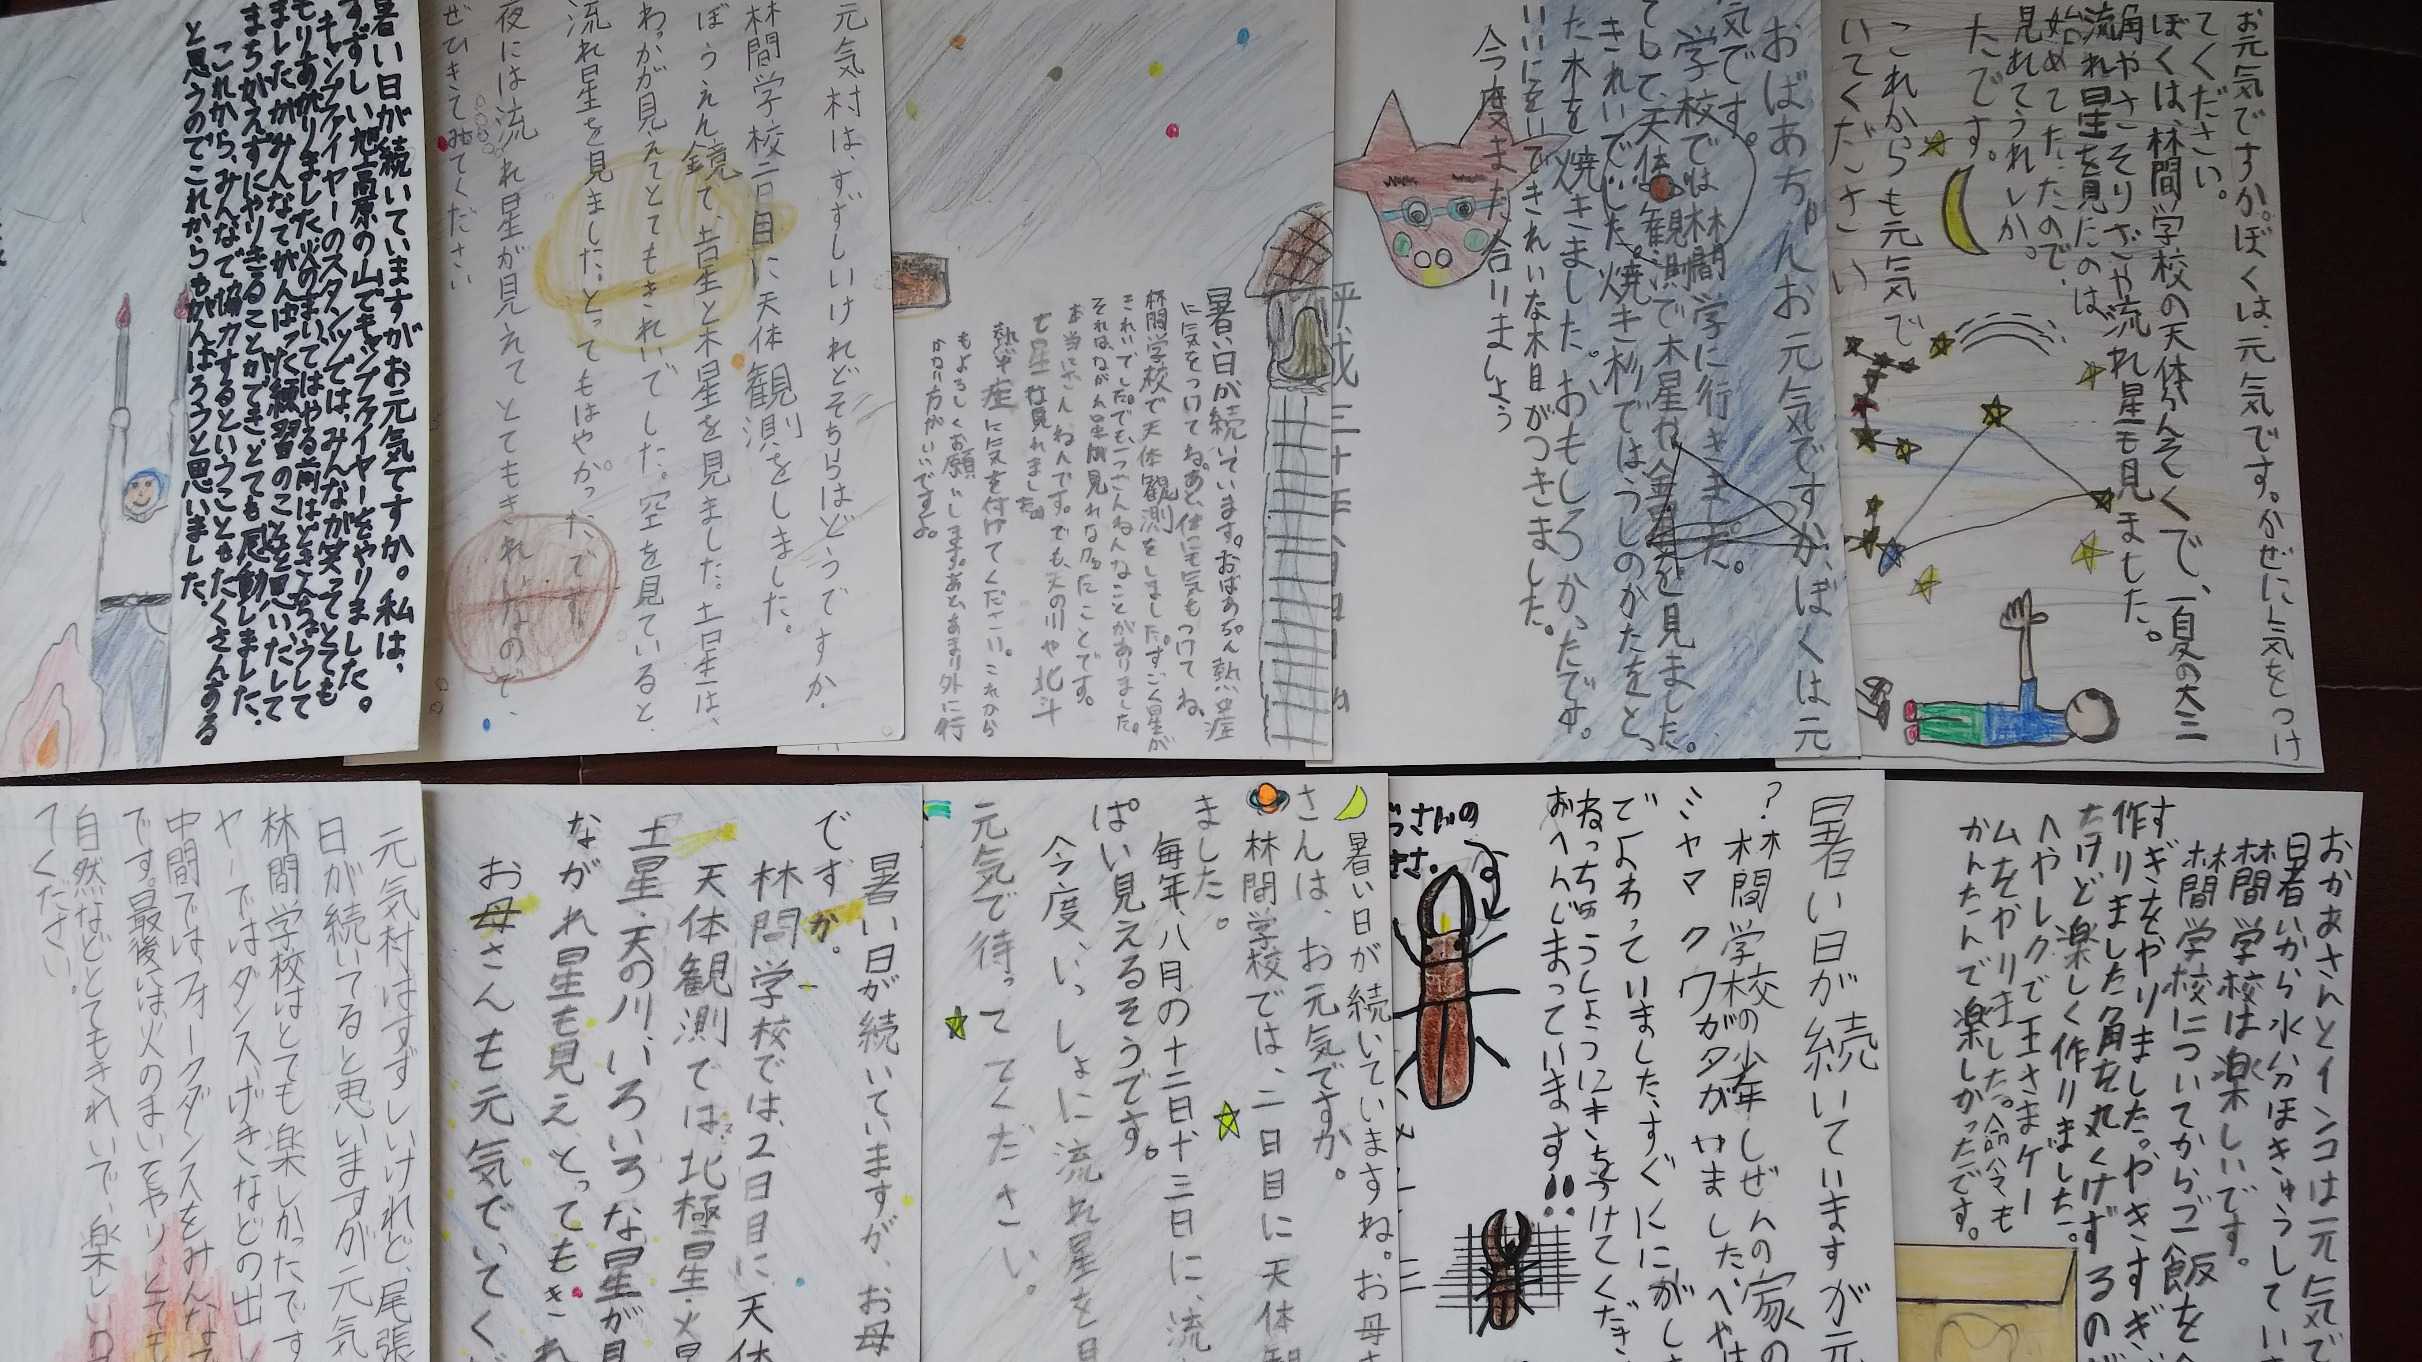 お元気ですか。ぼくは、元気です。かぜに気をつけ
てください。
ぼくは、林間学校の天体かんそくで、夏の大三
角やさそりざや流れ星も見ました。
流れ星を見たのは、
始めてだったので、
見れてうれしか
たです。
これからも元気で
いてください
おばあちゃんお元気ですか、ぼくは元
気です。
学校では林間学に行きました。
てして、天体観測で木星や金星を見ました。
きれいでした。焼き杉ではうしのかたをとっ
た木を焼きました。おもしろかったです。
いいにおいできれいな木目がつきました。
今度また合いましょう
平成三十年八月
暑い日が続いています。おばあちゃん熱中症
に気をつけてね。あと体にも気をつけてね。
林間学校で天体観測をしました。すごく星が
きれいでした。でも、一つざんねんなことがありました。
それは、ながれ星が見れなかったことです。
本当にざんねんです。でも、天の川や北斗
七星は見れました。
熱中症に気を付けてください。これから
もよろしくお願いします。あと、あまり外に行
かない方がいいですよ。
元気村は、すずしいけれどそちらはどうですか。
林間学校二日目に天体観測をしました。
ぼうえん鏡で、土星と木星を見ました。土星は、
わっかが見えてとてもきれいでした。空を見ていると、
流れ星を見ました。とってもはやかったです。
夜には流れ星が見えてとてもきれいなので、
ぜひきてみてください
暑い日が続いていますがお元気ですか。私は、
すずしい旭高原の山でキャンプファイヤーをやりました。
キャンプファイヤーのスタンツでは、みんなが笑ってとても
もりあがりました。火のまいではやる前はどきんちょうして
ましたがみんなでがんばった練習のことを思いだして
まちがえずにやりきることができとても感動しました。
これから、みんなで協力するということもたくさんする
と思うのでこれからもがんばろうと思いました。
おかあさんとインコは元気で
暑いから水分ほきゅうしてい
林間学校は楽しいです。
林間学校についてからご飯を
すぎをやりました。やきすぎ
作りました角を丸くけずるの
たけど楽しく作りました。
へやレクで王さまゲー
ムをやりました。命令も
かんたんで楽しかったです。
暑い日が続いていますが元
？林間学校の少年しぜんの家の
ミヤマクワガタがいました、へやは
でよわっていました、すぐににがし
ねっちゅうしょうにきをつけてくださ
おへんじまっています!!
暑い日が続いていますね。お母
さんは、お元気ですか。
林間学校では、二日目に天体観
ました。
毎年、八月の十二日十三日に、流
ぱい見えるそうです。
今度、いっしょに流れ星を見
元気で待っててください。
暑い日が続いていますが、お母
ですか。
林間学校では、2日目に、天体
天体観測では北極星・火星
土星・天の川、いろいろな星が見
ながれ星も見え、とってもきれ
お母さんも元気でいてくだ
元気村はすずしいけれど、尾張
日が続いてると思いますが元気
林間学校はとても楽しかったです
ヤーではダンス、げきなどの出し
中間では、フォークダンスをみんなで
です。最後には火のまいをやり、とても
自然などとてもきれいで、楽しい
てください。